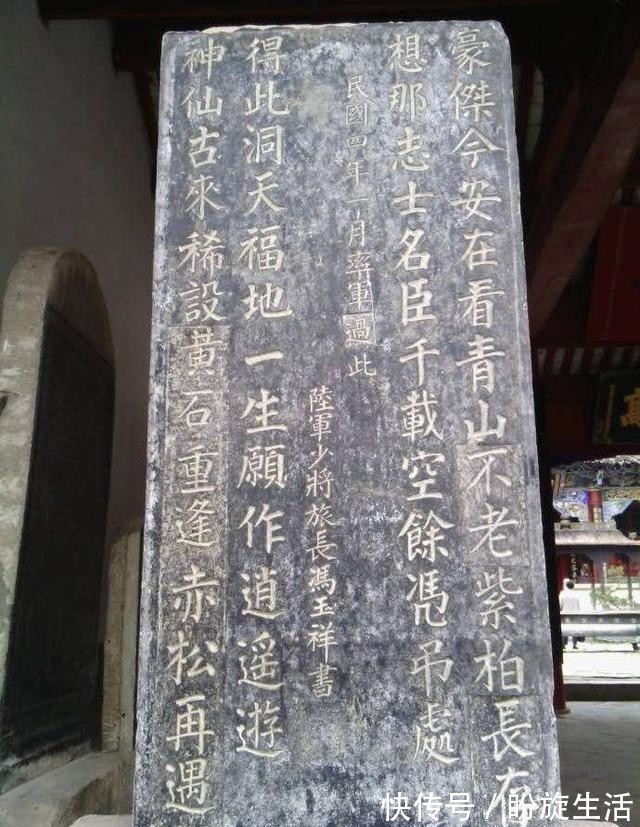 豪傑今安在看青山不老紫柏長存
想那志士名臣千載空餘凴吊處
民國四年一月率軍過此
陸軍少將旅長馮玉祥書
得此洞天福地一生願作逍遥遊
神仙古來稀設黃石重逢赤松再遇
快传号/盼旋生活